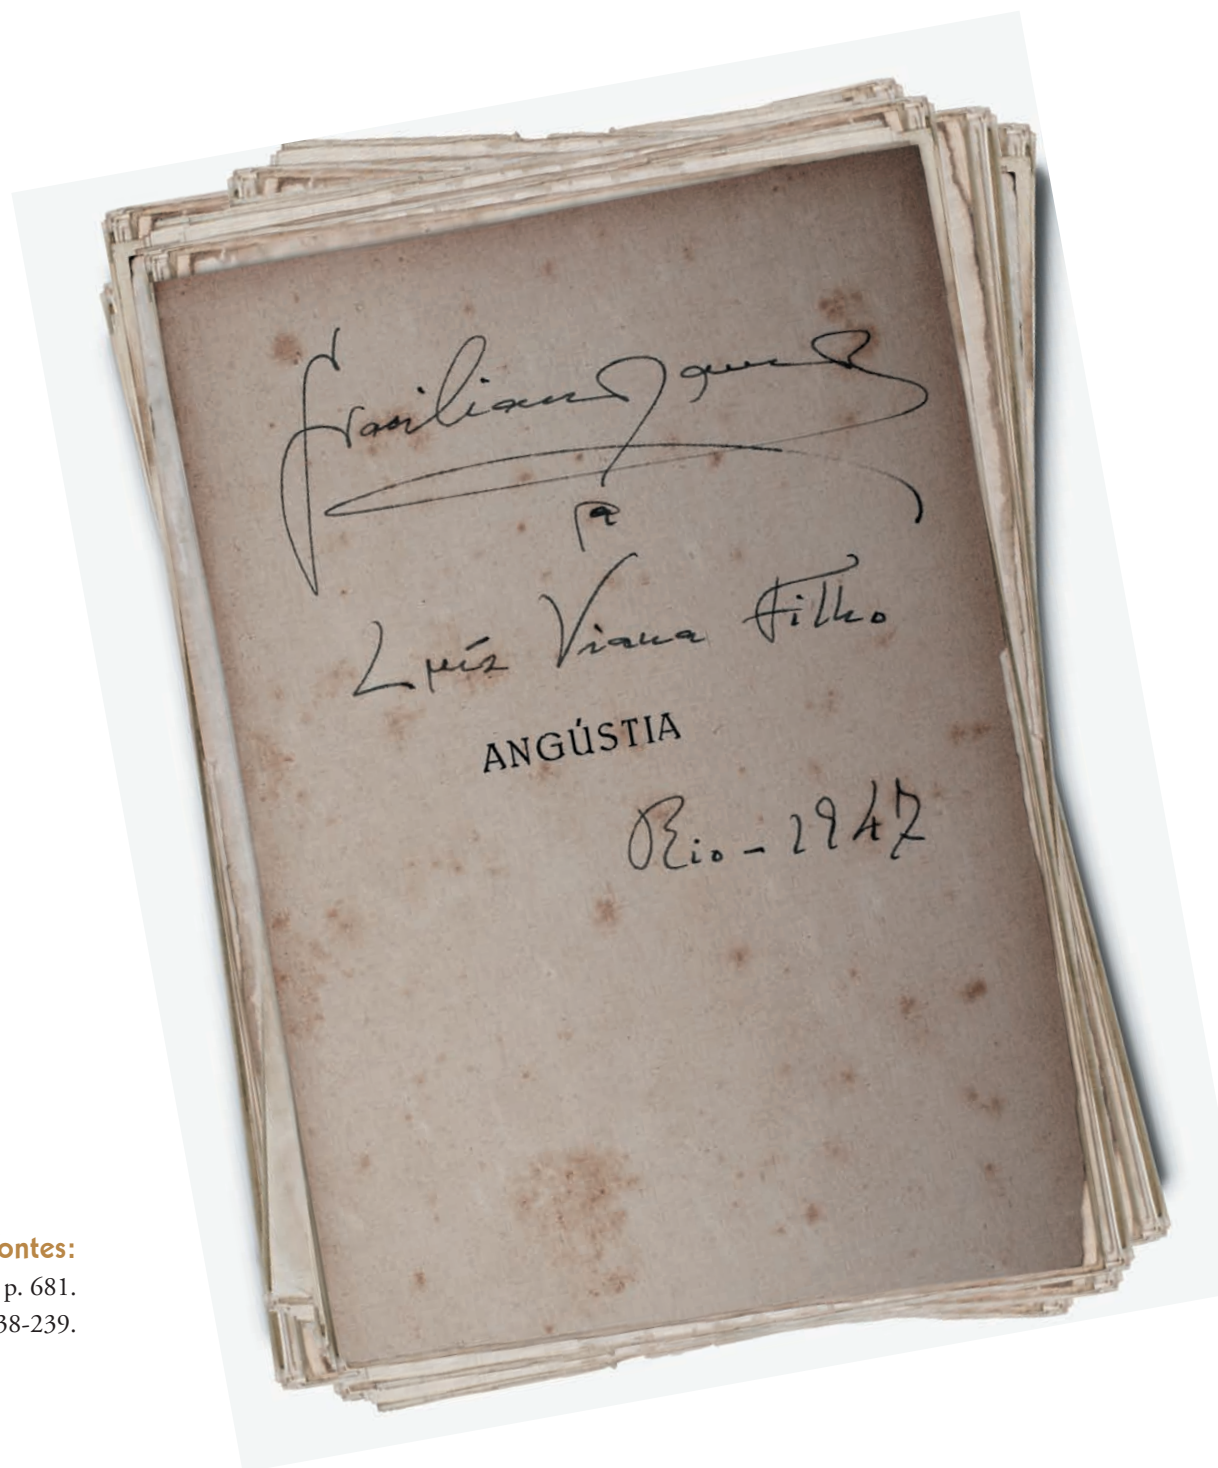 Graciliano Ramos
a
Luís Viana Filho
ANGÚSTIA
Rio - 1947
ontes:
p. 681.
38-239.